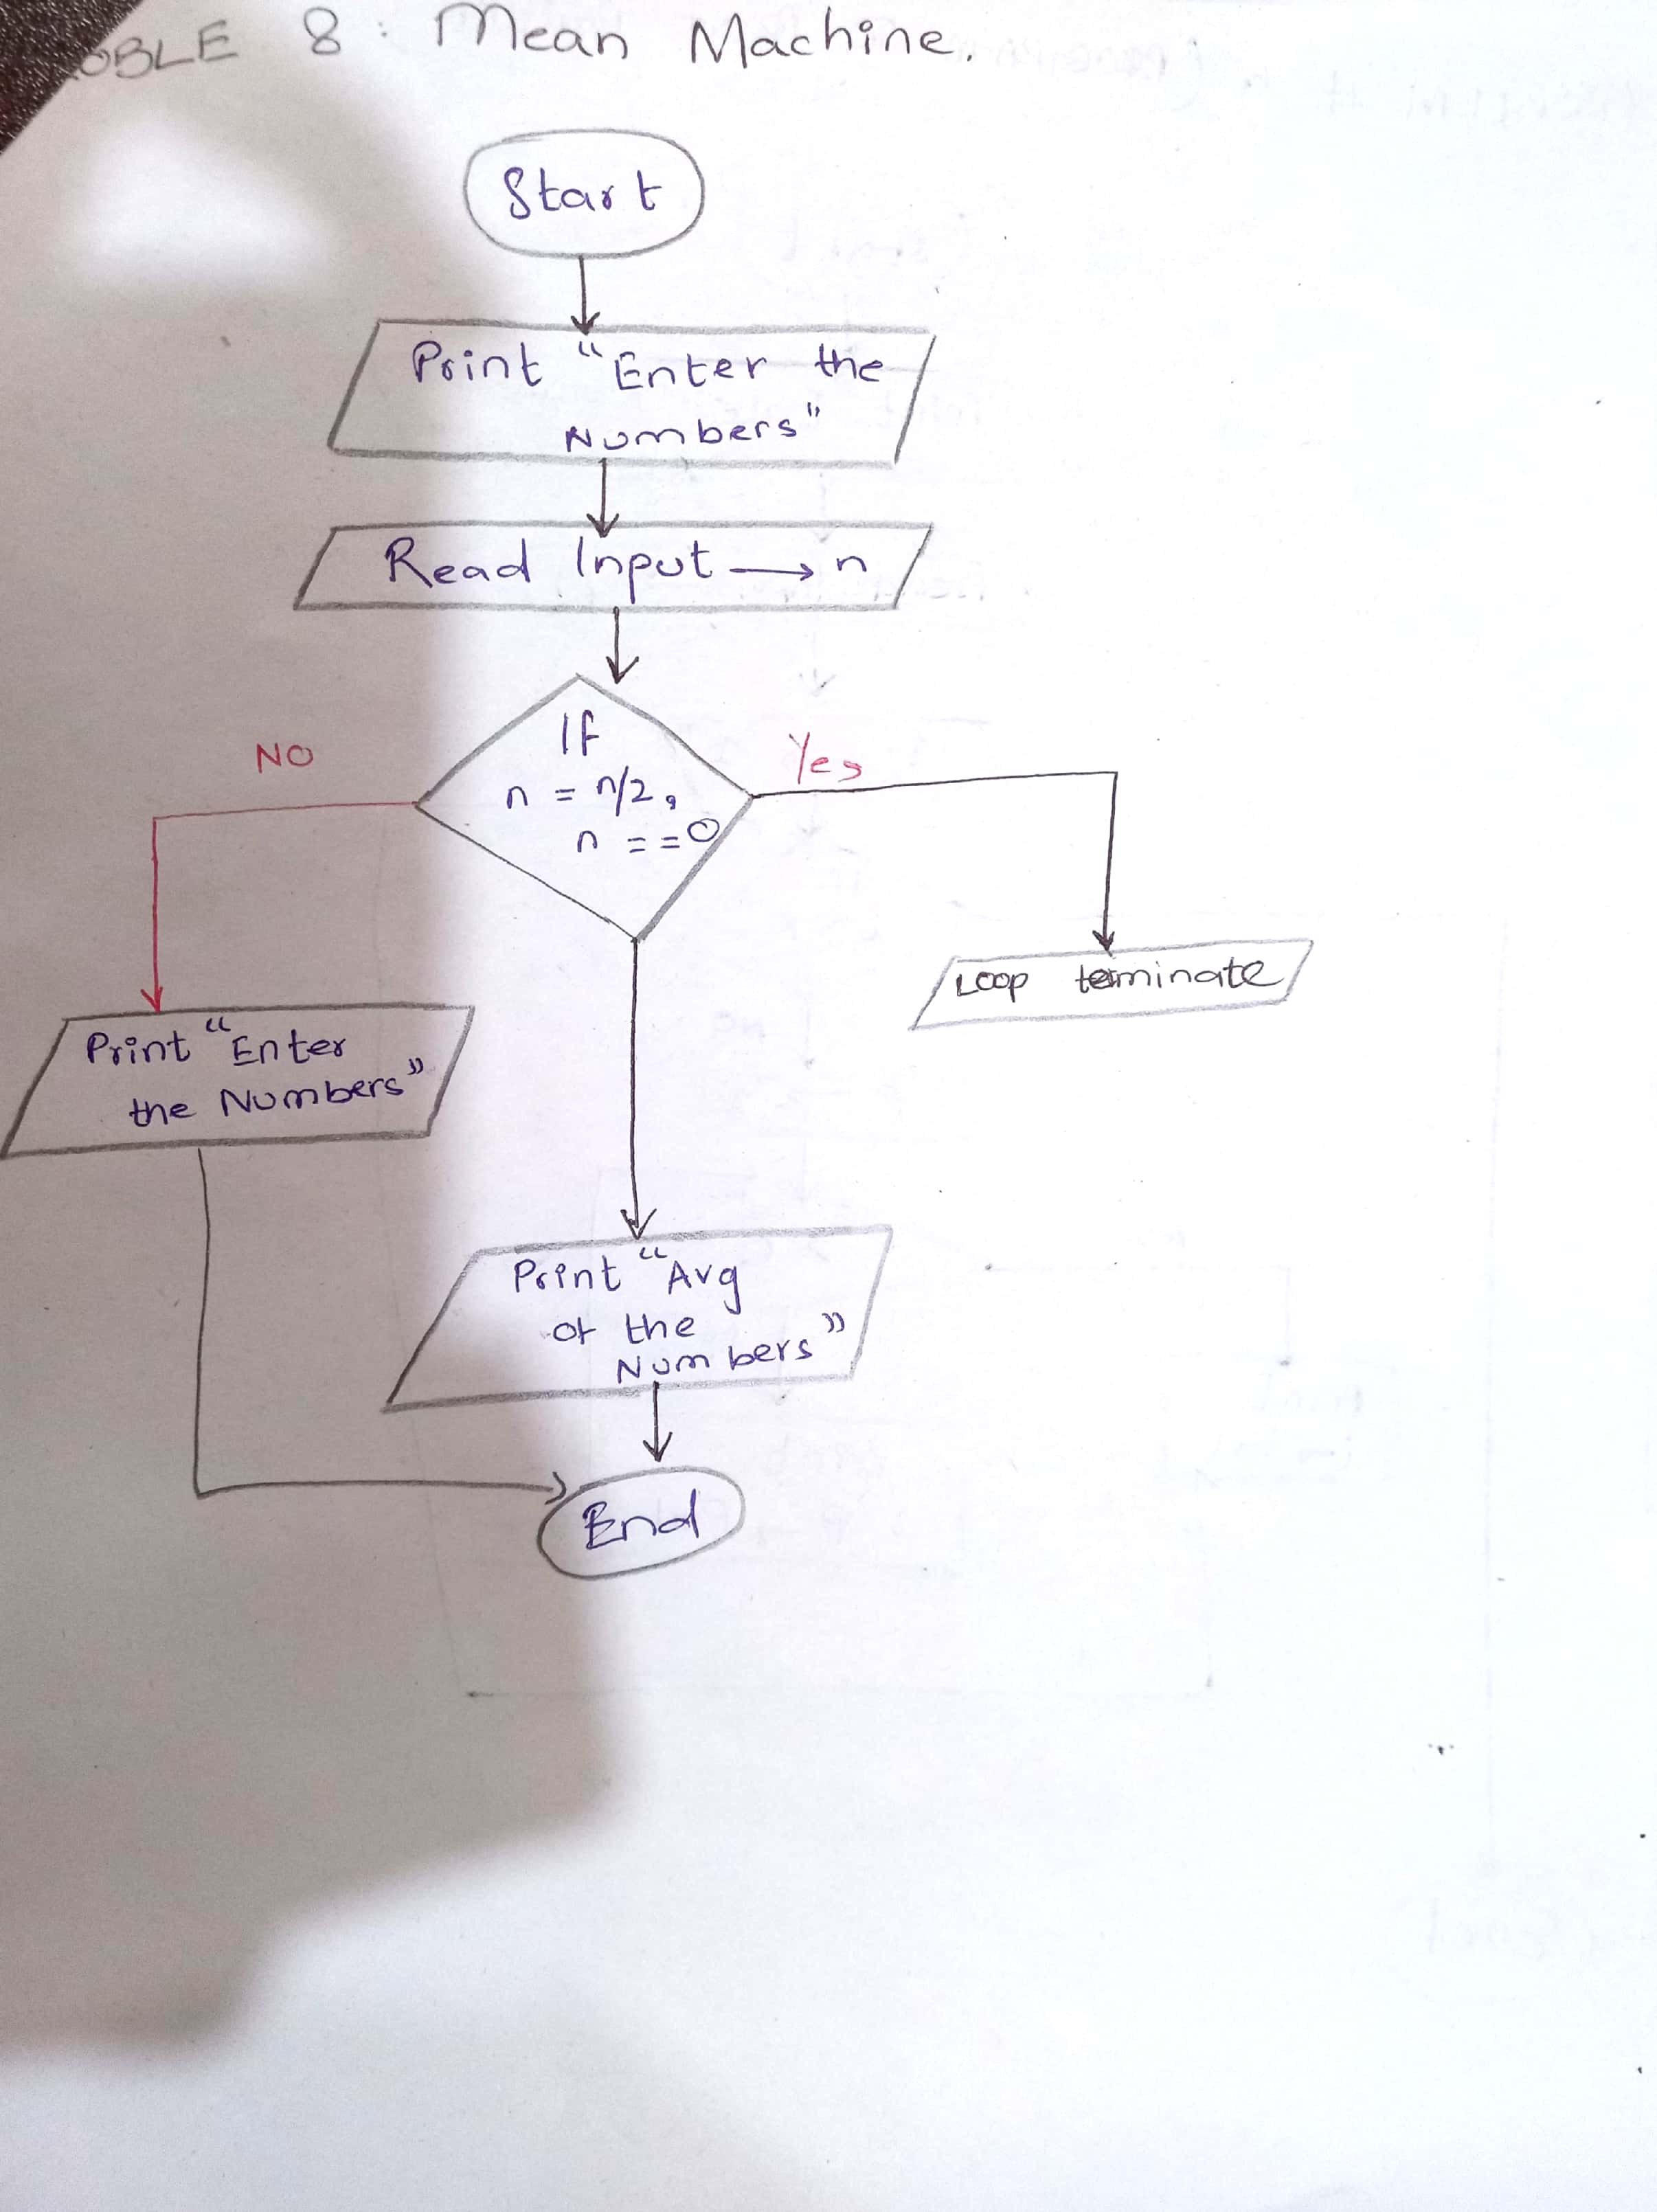 8: Mean Machine.
Start
Print "Enter the
Numbers"
Read Input → n
If
n = n/2,
n == 0
NO
Yes
Loop terminate
Print "Enter
the Numbers"
Print "Avg
of the
Numbers"
End